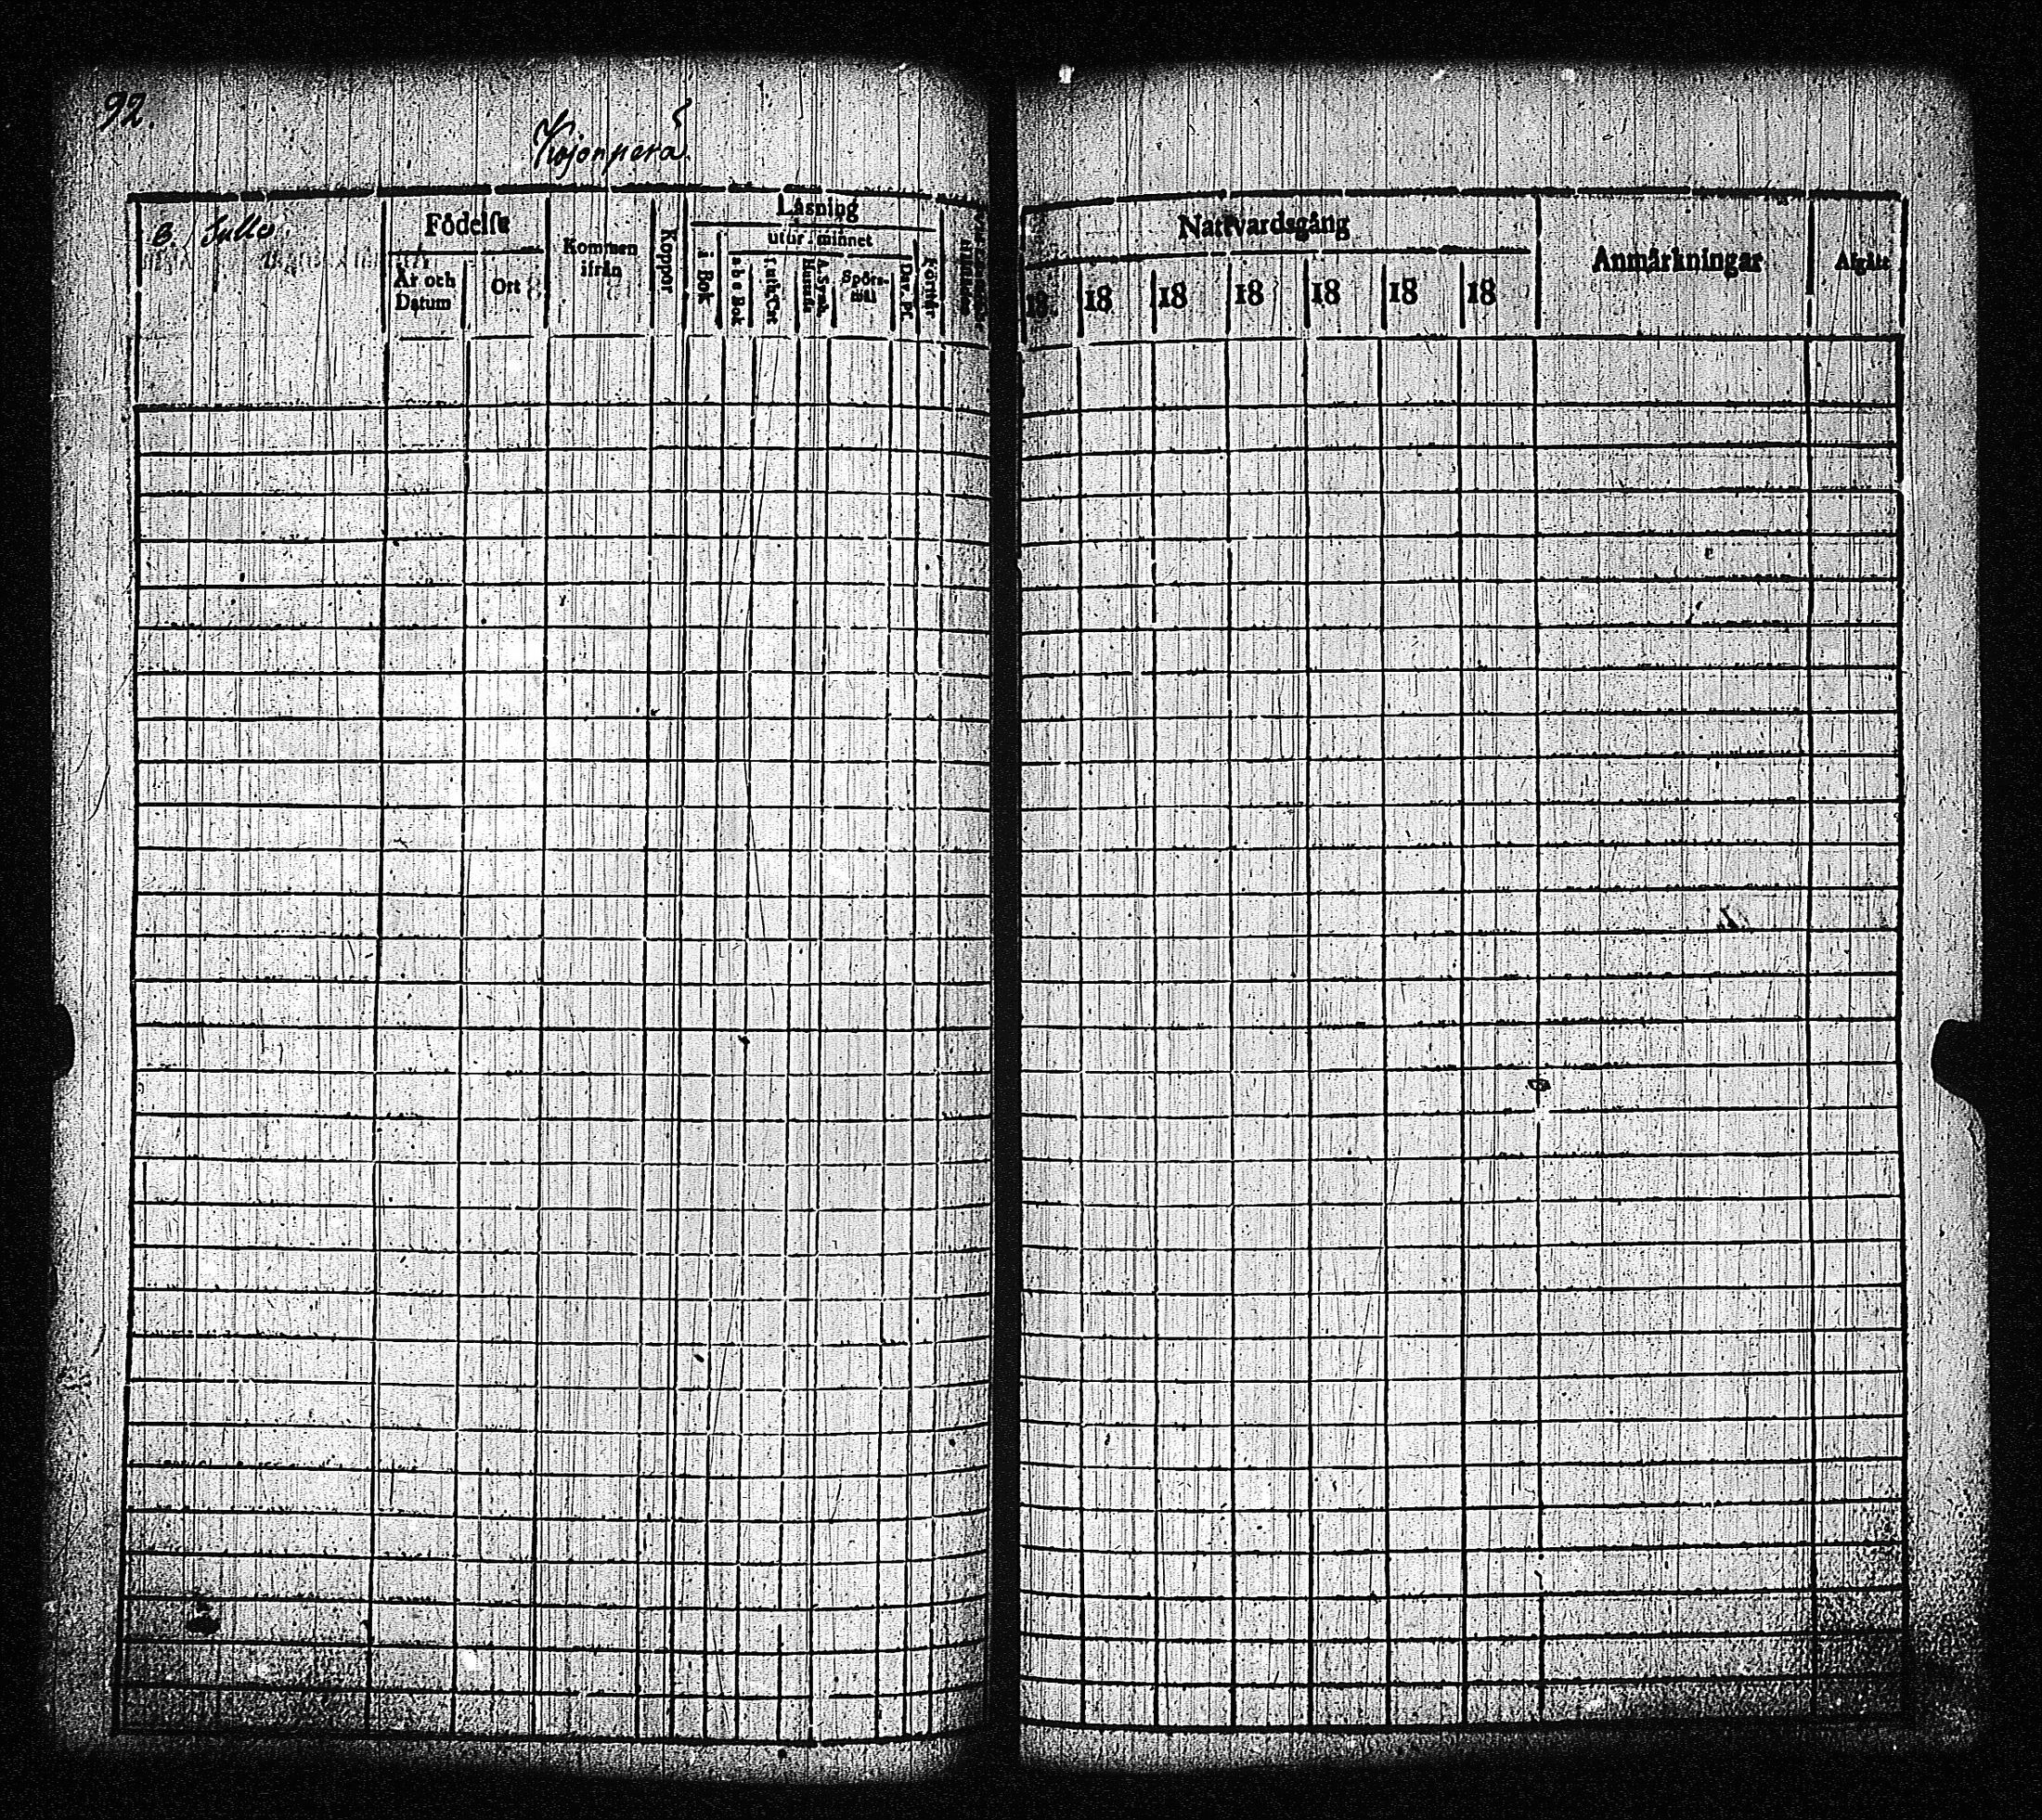 92.
Kojonperä
B. Sullo.
Födelse
Kommen ifrån
Koppor
Läsning
utur minnet
År och Datum
Ort
i Bok
a b c Bok
Luth. Cat.
A. Symb.
Hustafl.
Spörsmål
Dav. Ps.
Förstår
Nattvardsgång
18 18 18 18 18 18 18
Anmärkningar
Afgått